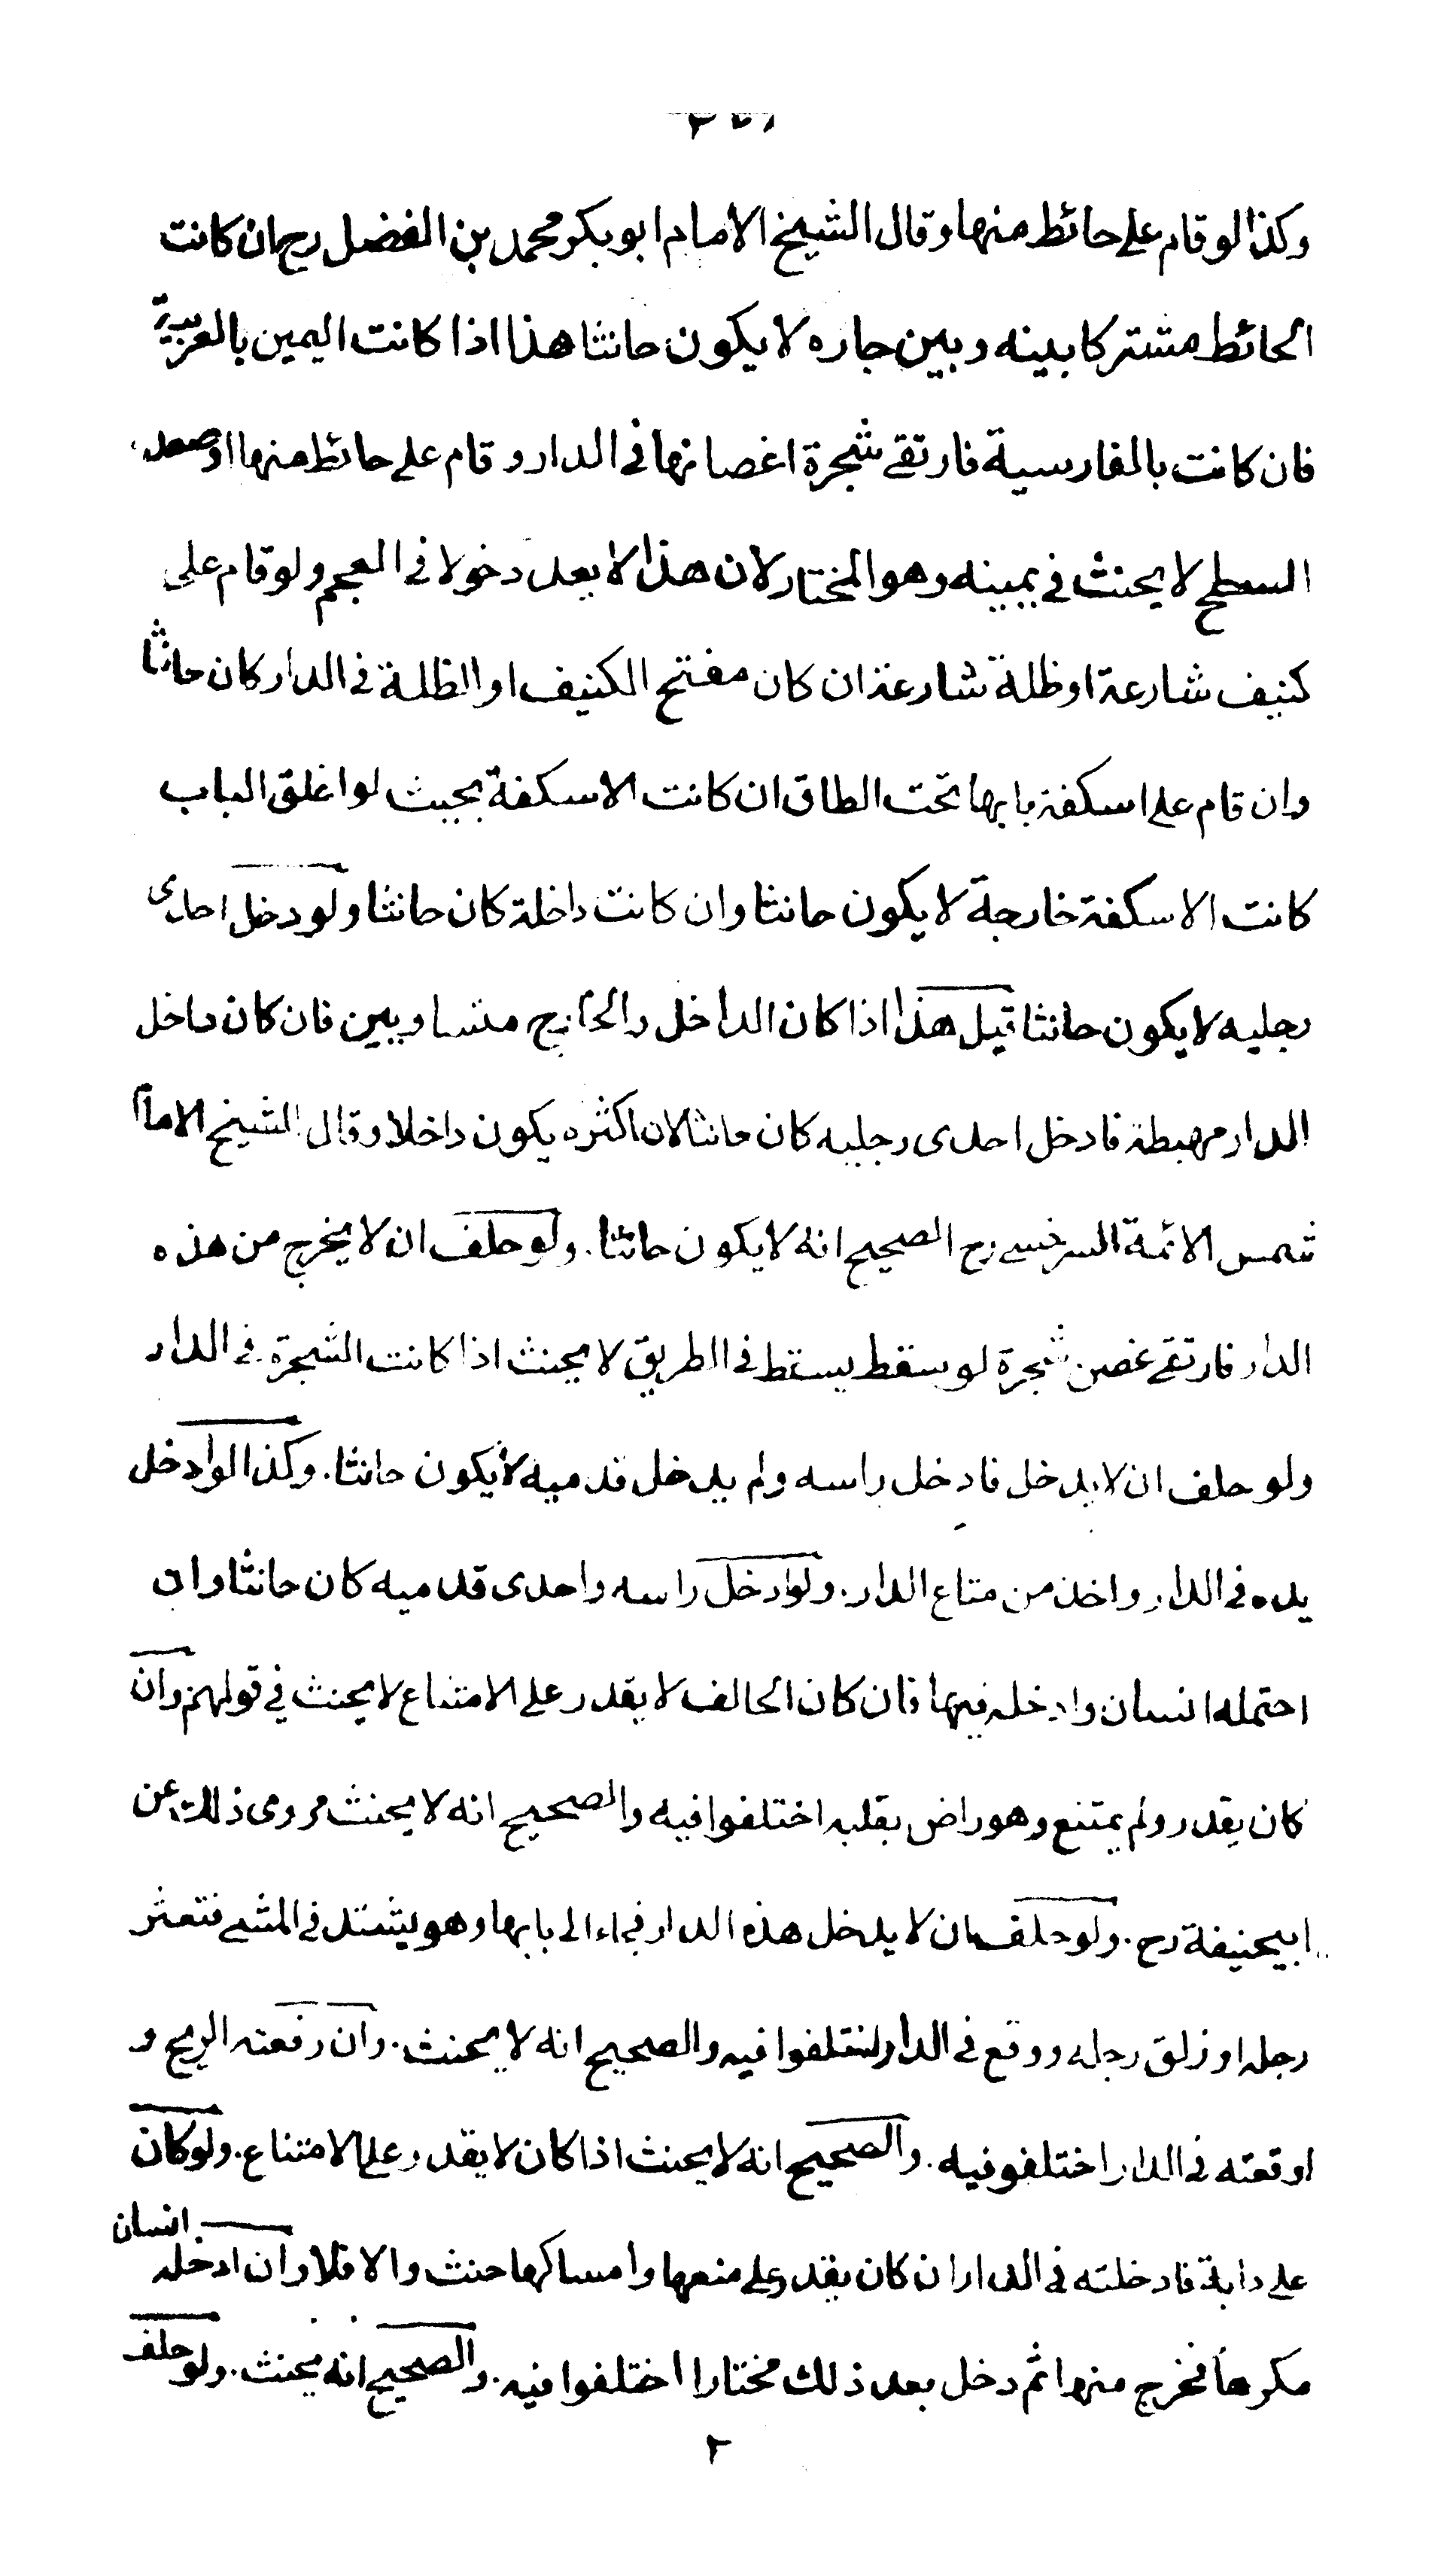 وكذا لو قام على حائط منها وقال الشيخ الامام ابو بكر محمد بن الفضل رح ان كانت
الحائط مشتركا بينه وبين جاره لا يكون حانثا هذا اذا كانت اليمين بالعربية
فان كانت بالفارسية فارتقى شجرة اغصانها في الدار وقام على حائط منها او صعد
السطح لا يحنث في يمينه وهو المختار لان هذا لا يعد دخولا في العجم ولو قام على
كنيف شارعة او ظلة شارعة ان كان مفتح الكنيف او الظلة في الدار كان حانثا
وان قام على اسكفة بابها تحت الطاق ان كانت الاسكفة بحيث لو اغلق الباب
كانت الاسكفة خارجة لا يكون حانثا وان كانت داخلة كان حانثا ولو دخل احدى
رجليه لا يكون حانثا قيل هذا اذا كان الداخل والخارج متساويين فان كان داخل
الدار مهبطة فادخل احدى رجليه كان حانثا لان اكثره يكون داخلا وقال الشيخ الامام
شمس الائمة السرخسى رح الصحيح انه لا يكون حانثا. ولو حلف ان لا يخرج من هذه
الدار فارتقى غصن شجرة لو سقط يسقط في الطريق لا يحنث اذا كانت الشجرة في الدار
ولو حلف ان لا يدخل فادخل راسه ولم يدخل قدميه لا يكون حانثا. وكذا لو ادخل
يده في الدار واخذ من متاع الدار. ولو ادخل راسه واحدى قدميه كان حانثا وان
احتمله انسان وادخله فيها فان كان الحالف لا يقدر على الامتناع لا يحنث في قولهم وان
كان يقدر ولم يمتنع وهو راض بقلبه اختلفوا فيه والصحيح انه لا يحنث مروى ذلك عن
ابيحنيفة رح. ولو حلف ان لا يدخل هذه الدار فجاء الى بابها وهو يشتد في المشى فتعثر
رجله او زلق رجله ووقع في الدار اختلفوا فيه والصحيح انه لا يحنث. وان رفعته الريح و
اوقعته في الدار اختلفو فيه. والصحيح انه لا يحنث اذا كان لا يقدر على الامتناع. ولو كان
على دابة فادخلته في الدار ان كان يقدر على منعها وامساكها حنث والا فلا وان ادخله انسان
مكرها فخرج منها ثم دخل بعد ذلك مختارا اختلفوا فيه. والصحيح انه يحنث. ولو حلف
٢